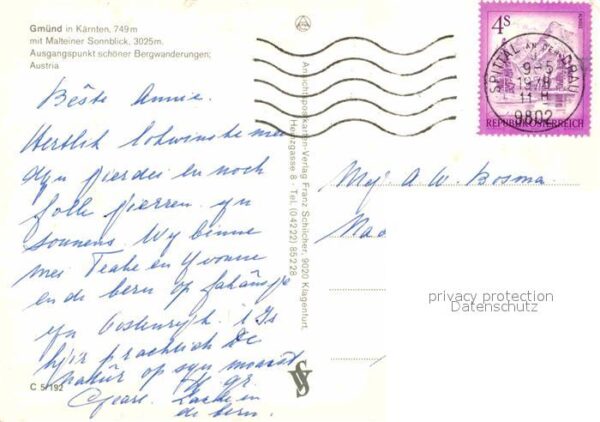 Gmünd in Kärnten, 749 m
mit Malteiner Sonnblick, 3025m.
Ausgangspunkt schöner Bergwanderungen;
Austria
Bêste Annie.
Hertlik lokwinske mei
dyn jierdei en noch
folle jierren yn
sounens. Wy binne
mei Teake en Yvonne
en de bern op fakânsje
yn Oostenryk. 't Is
hjir prachtich De
natûr op syn moaist
gr.
de bern.
C 5/192
Ansichtspostkarten-Verlag Franz Schilcher, 9020 Klagenfurt,
Herzgasse 8 - Tel. (04222) 85 2 28
4 S
REPUBLIK ÖSTERREICH
SPITTAL AN DER DRAU
9802
Mej. A W. Bosma
privacy protection
Datenschutz